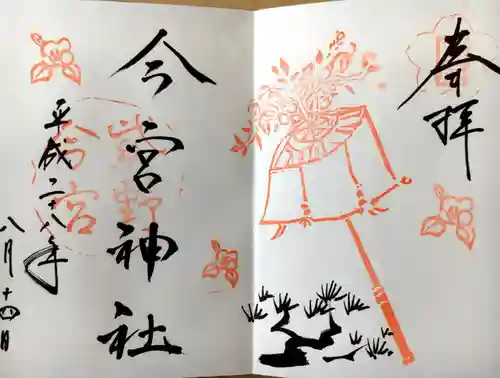 奉拝
今宮神社
平成二十八年
八月十四日
紫野
今宮